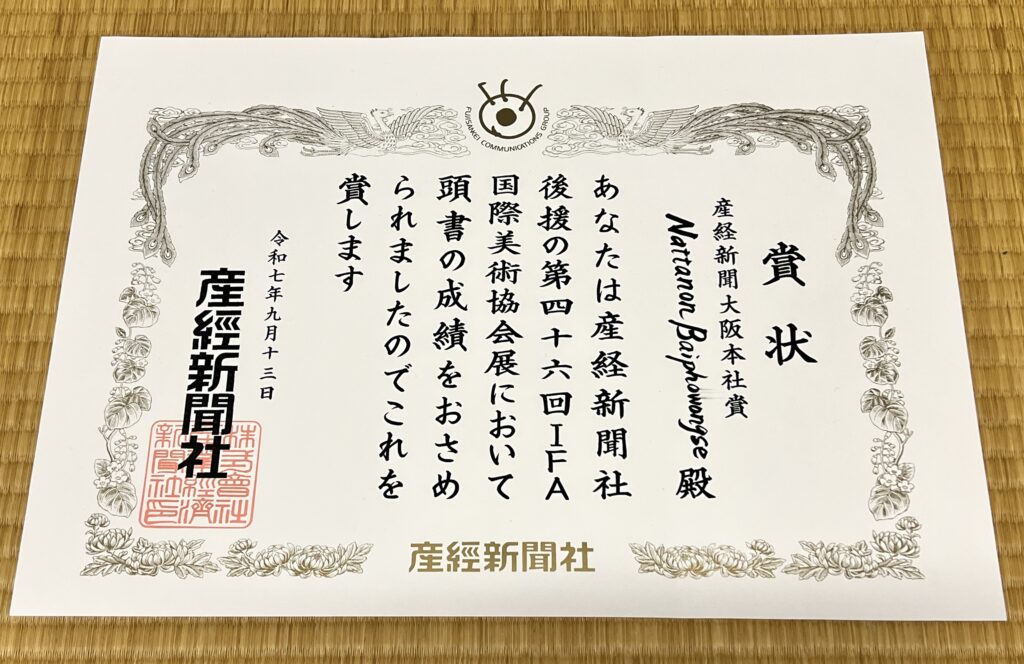 FUJISANKEI COMMUNICATIONS GROUP
賞状
産経新聞大阪本社賞
Nattanon Baiphowongse 殿
あなたは産経新聞社
後援の第四十六回IFA
国際美術協会展において
頭書の成績をおさめ
られましたのでこれを
賞します
令和七年九月十三日
産經新聞社
株式會社
産業經濟
新聞社印
産經新聞社